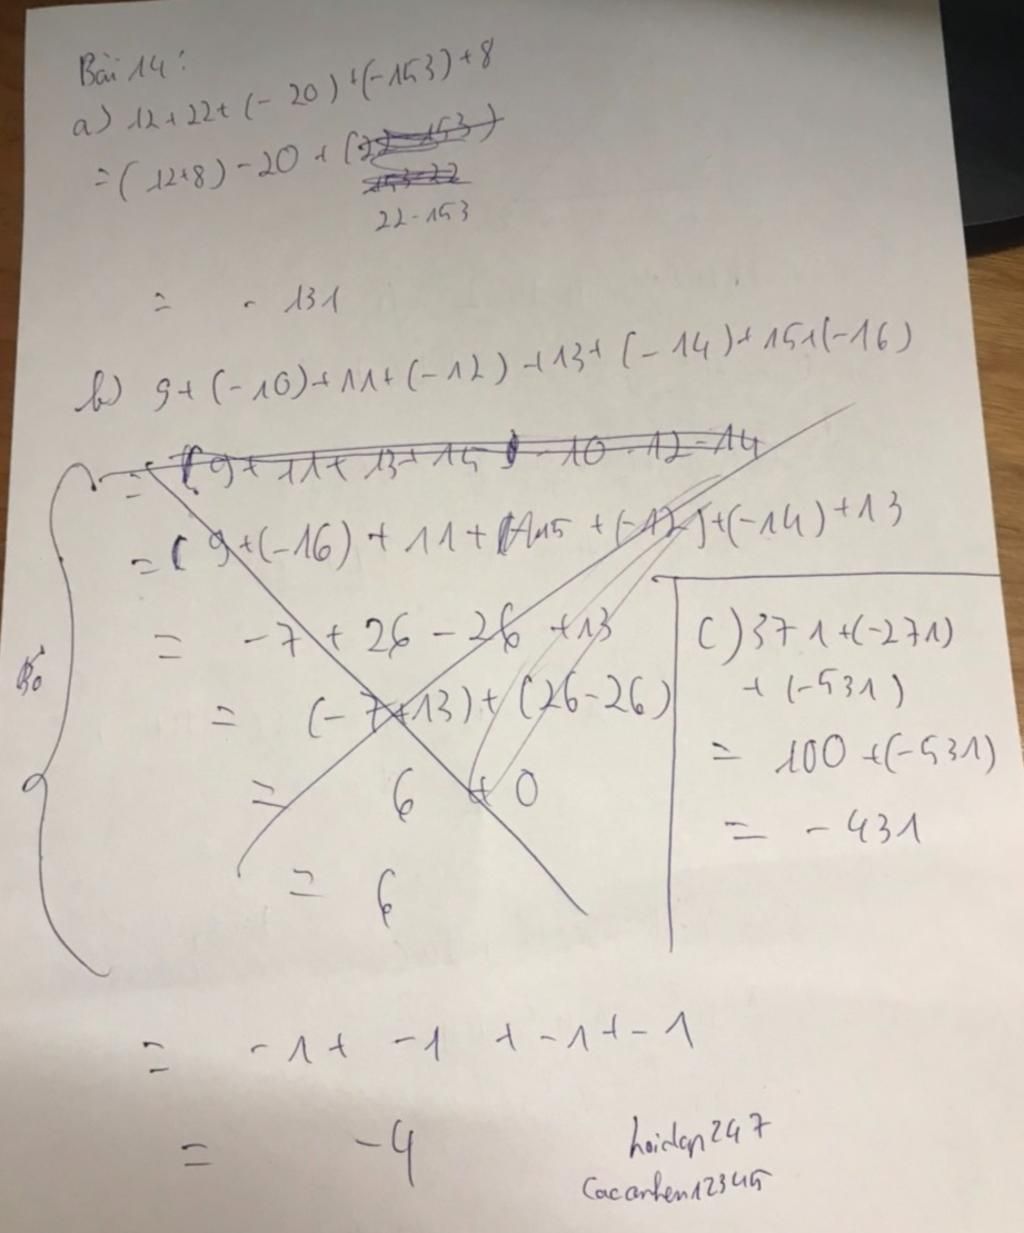 Bài 14:
a) 12+22+(-20)+(-153)+8
=(12+8)-20+(22-153)
153-22
22-153
= -131
b) 9+(-10)+11+(-12)+13+(-14)+15+(-16)
= (9+11+13+15)-10-12-14
=(9+(-16)+11+15+(-12)+(-14)+13
= -7+26-26+13
= (-7+13)+(26-26)
= 6+0
= 6
Bỏ
C) 371+(-271)
+(-531)
= 100+(-531)
= -431
= -1+ -1 + -1+ -1
= -4
hoidap247
Cacanhen12345